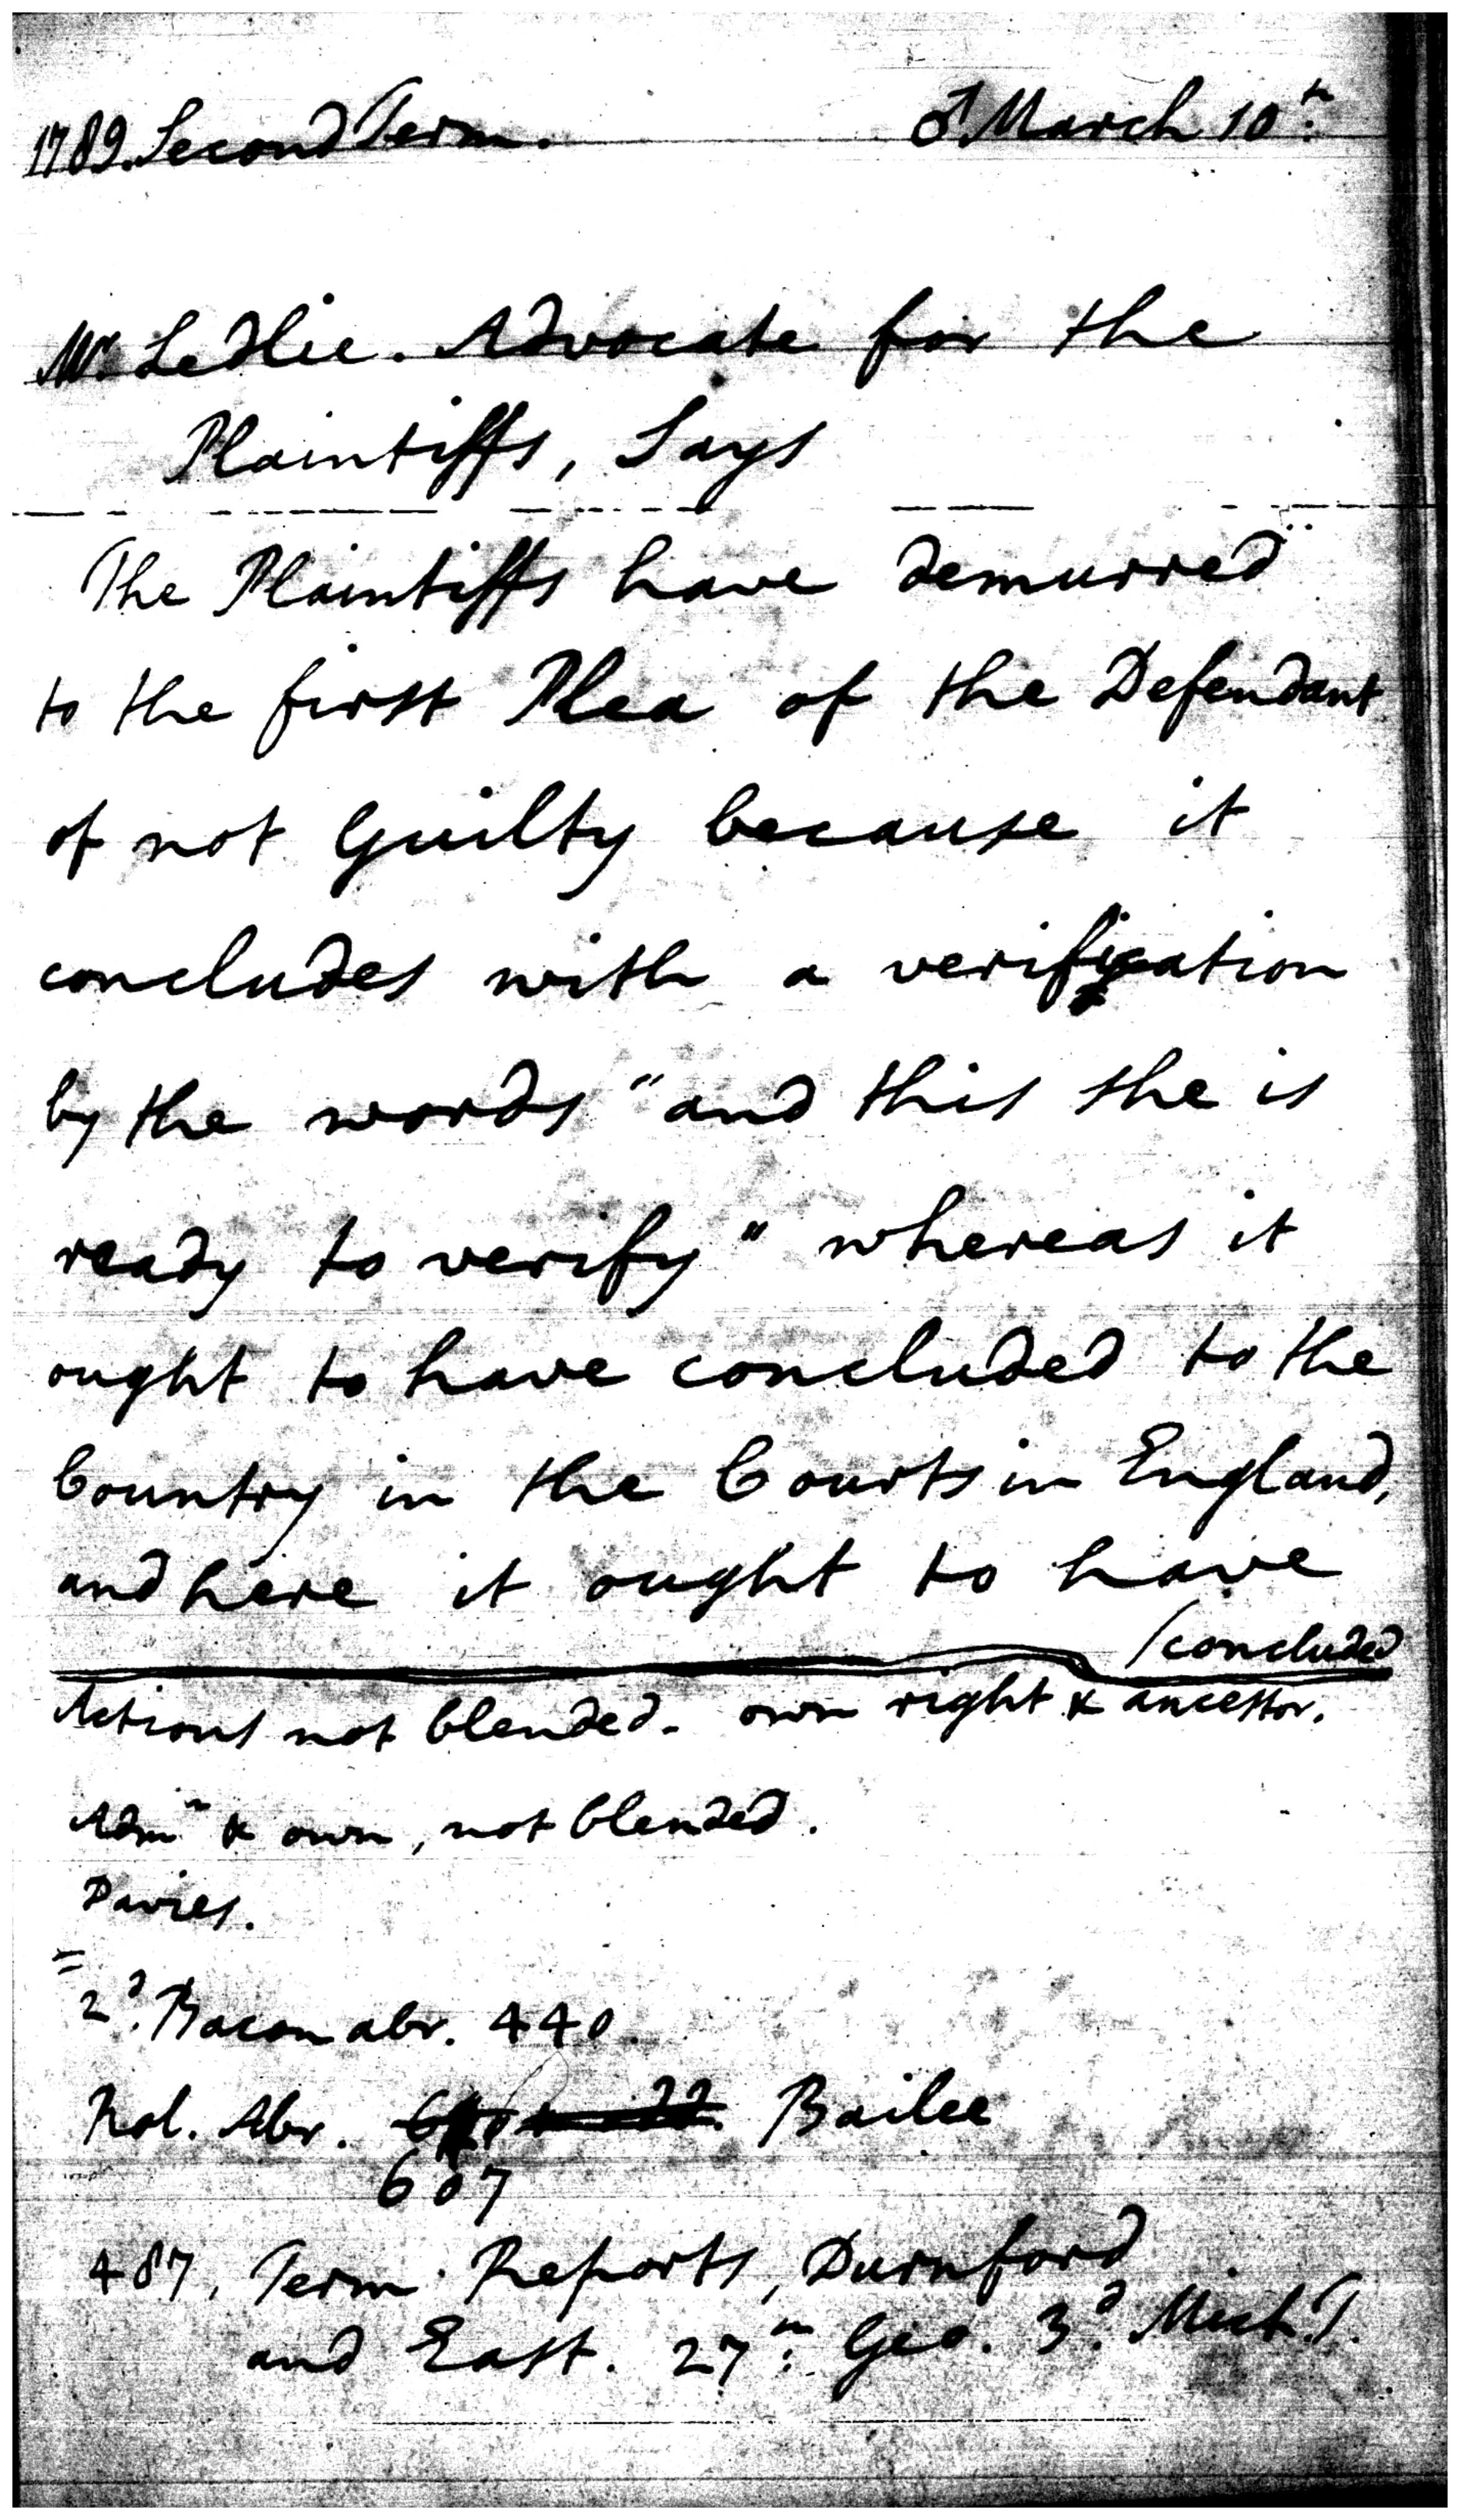 1789. Second Term. ♂. March 10th.
Mr. Ledlie. Advocate for the
Plaintiffs, Says
The Plaintiffs have demurred
to the first Plea of the Defendant
of not Guilty because it
concludes with a verification
by the words "and this she is
ready to verify" whereas it
ought to have concluded to the
Country in the Courts in England,
and here it ought to have
/concluded
Actions not blended. own right & ancestor.
Admn & own, not blended.
Davies.
=
2d. Bacon abr. 440.
Rol. Abr. Bailee
607
487, Term Reports, Durnford
and East. 27th. Geo. 3d. Mich. T.